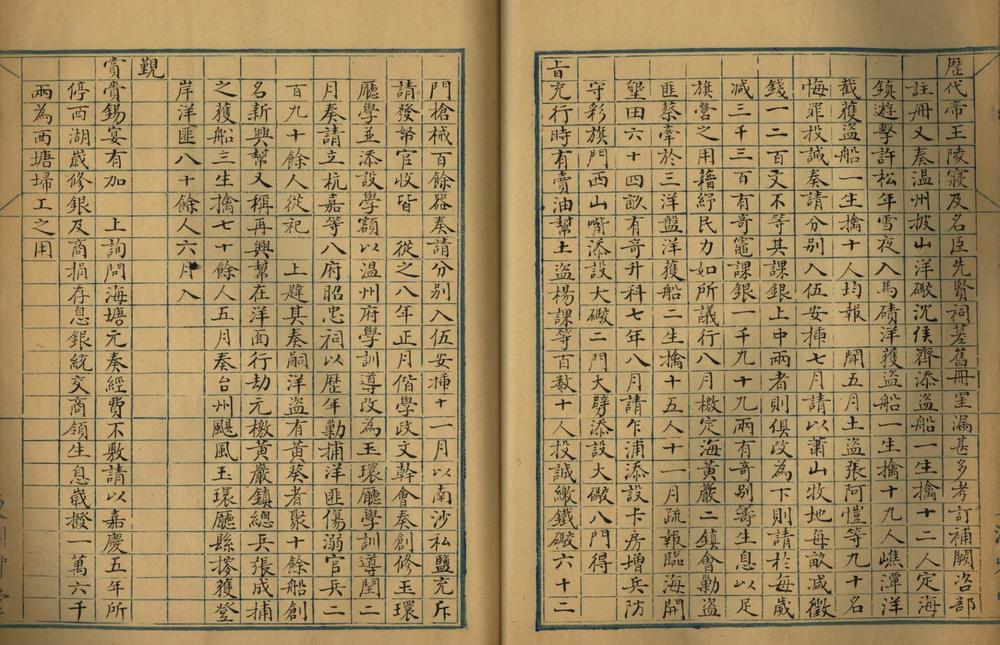 歷代帝王陵寢及名臣先賢祠墓舊冊罣漏甚多考訂補闕咨部
註冊又奏溫州披山洋礮沈侯齊添盜船一生擒十二人定海
鎮遊擊許松年雪夜入馬磧洋獲盜船一生擒十九人嶕潭洋
截獲盜船一生擒十人均報　開五月土盜張阿愷等九十名
悔罪投誠奏請分別入伍安揷七月請以蕭山牧地每畝減徵
錢一二百文不等其課銀上中兩者則俱改為下則請於每歲
減三千三百有奇竈課銀一千九十九兩有奇別籌生息以足
旗營之用藉紓民力如所議行八月檄定海黃巖二鎮會勦盜
匪蔡牽於三洋盤洋獲船二生擒十五人十一月疏報臨海開
墾田六十四畝有奇升科七年八月請乍浦添設卡房增兵防
守彩旗門西山嘴添設大礮二門大劈添設大礮八門得
旨充行時有賣油幫土盜楊課等百敖十人投誠繳鐵礮六十二
門槍械百餘器奏請分別入伍安揷十一月以南沙私鹽充斥
請發帑官收皆　從之八年正月偕學政文幹會奏創修玉環
廳學並添設學額以溫州府學訓導改為玉環廳學訓導閏二
月奏請立杭嘉等八府昭忠祠以歷年勦捕洋匪傷溺官兵二
百九十餘人從祀　上韙其奏嗣洋盜有黃葵者聚十餘船創
名新興幫又稱再興幫在洋面行劫元檄黃嚴鎮總兵張成捕
之獲船三生擒七十餘人五月奏台州颶風玉環廳縣搒獲登
岸洋匪八十餘人六月入
覲
賞賚錫宴有加　上詢問海塘元奏經費不敷請以嘉慶五年所
停西湖歲修銀及商捐存息銀統交商領生息歲撥一萬六千
兩為西塘埽工之用